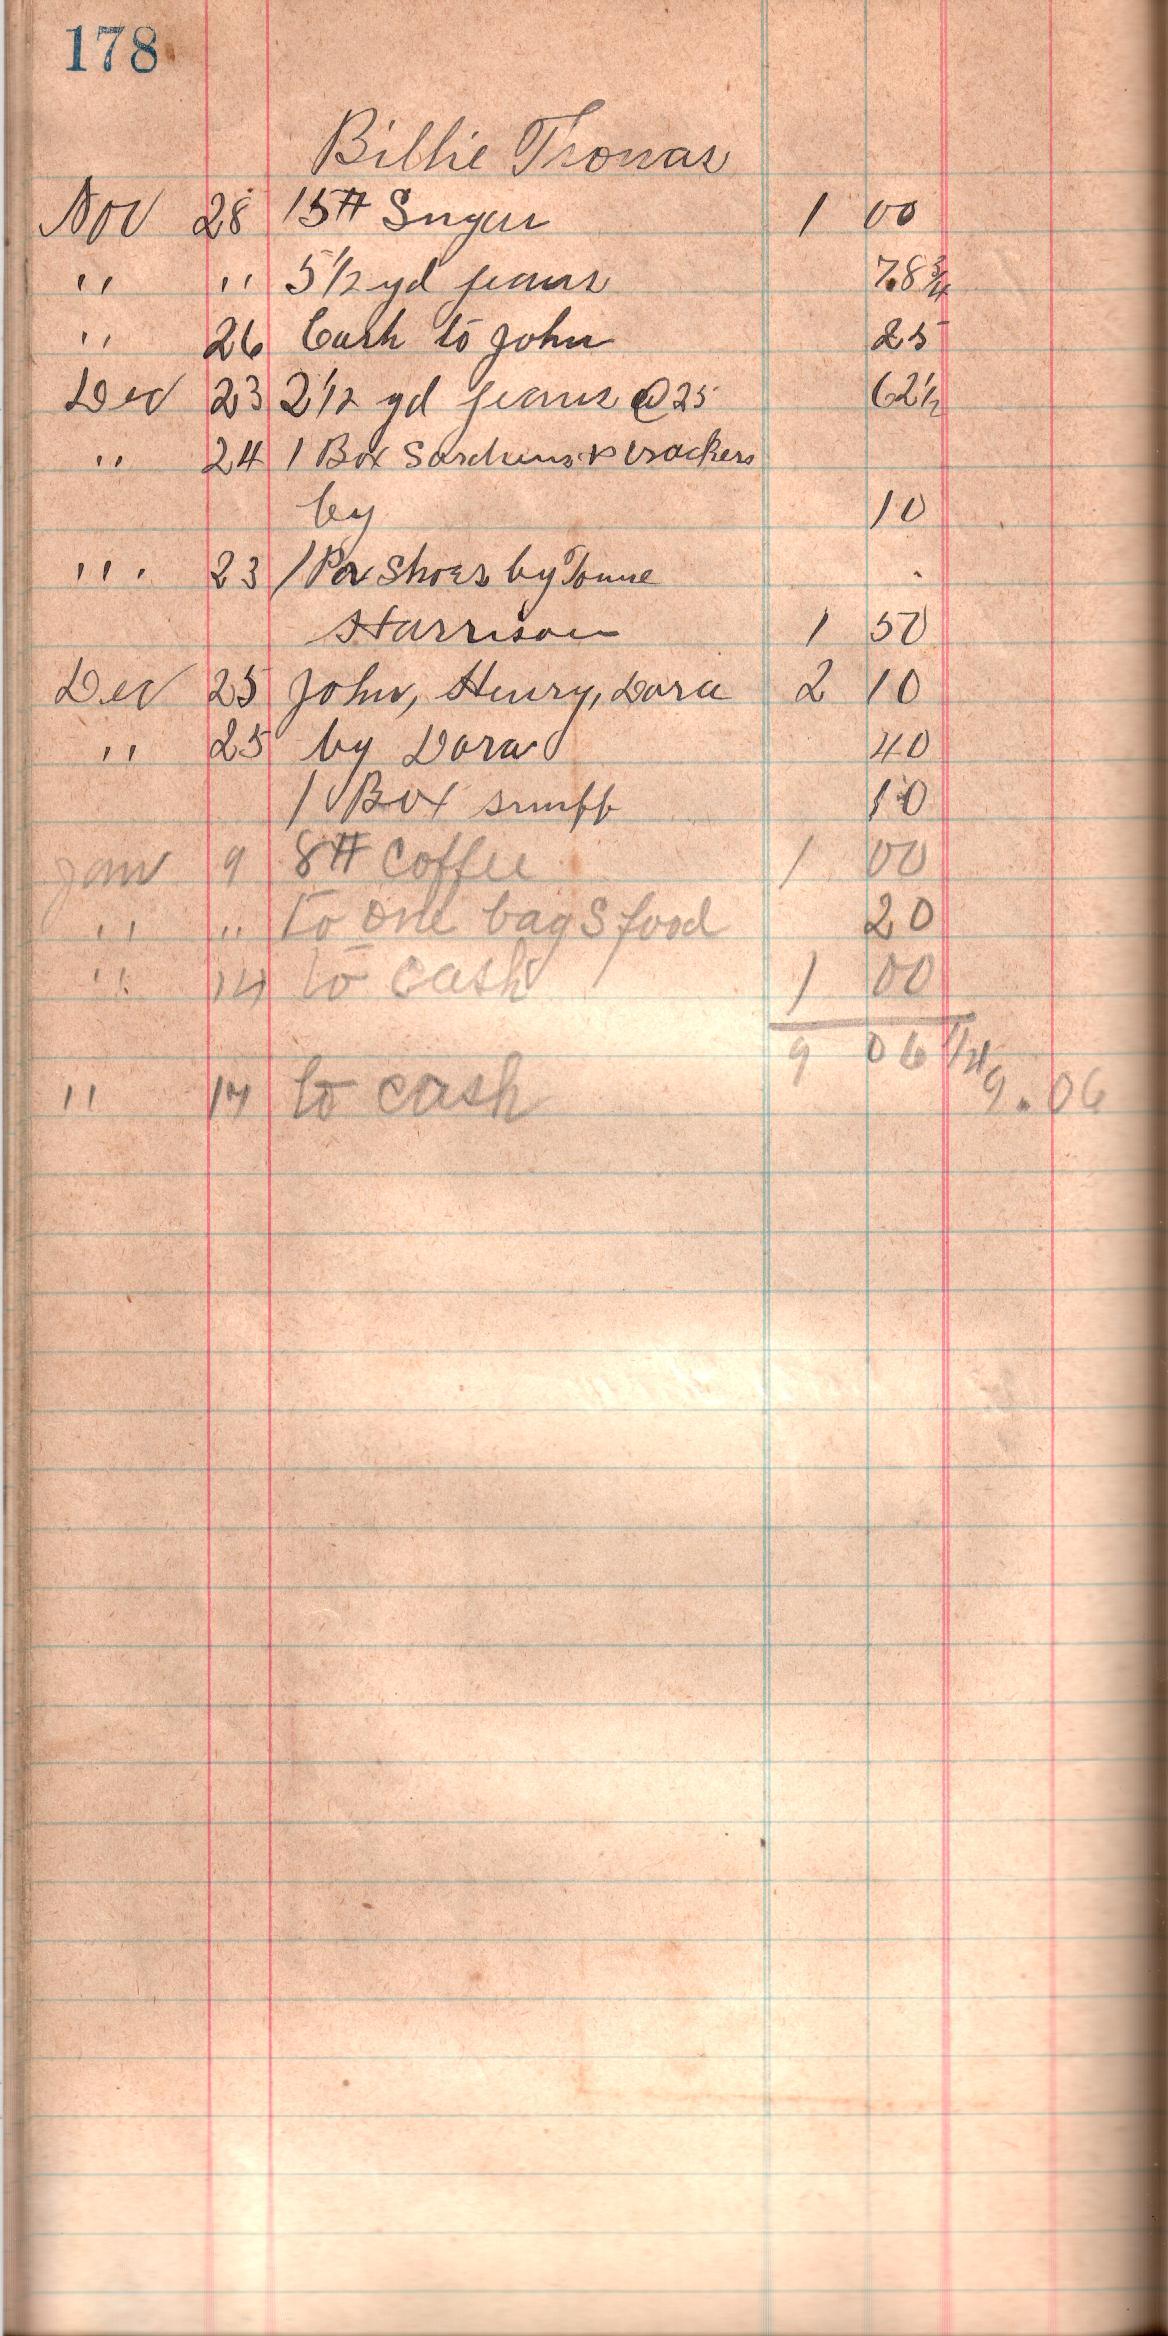 178
Billie Thomas
Nov 28 15# Sugar 1 00
" " 5 1/2 yd jeans 78 3/4
" 26 Cash to John 25
Dec 23 2 1/2 yd jeans @ 25 62 1/2
" 24 1 Box Sardines & Crackers
by 10
" 23 1 Pr Shoes by
Harrison 1 50
Dec 25 John, Henry, Dora 2 10
" 25 by Dora 40
1 Box snuff 10
Jan 9 8# Coffee 1 00
" " to one bag S food 20
" to cash 1 00
9 06 1/4
" to cash 9.06